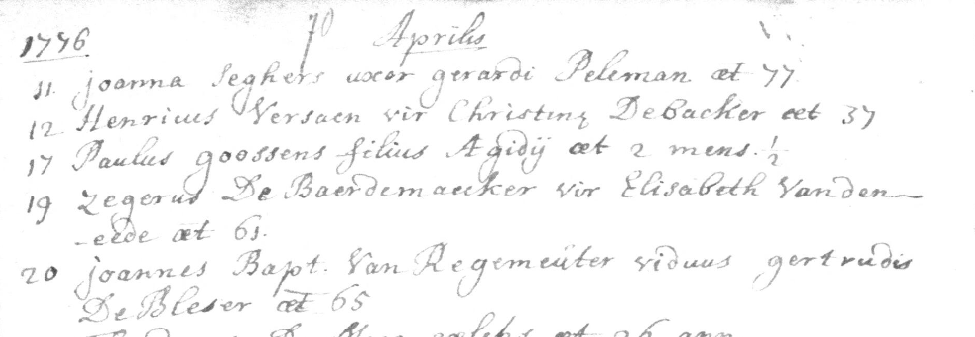 70
1776 Aprilis
11 joanna Seghers uxor gerardi Peleman æt 77
12 Henricus Versaen vir Christinę Debacker æt 37
17 Paulus goossens filius Ægidij æt 2 mens. ½
19 Zegerus De Baerdemaecker vir Elisabeth Vanden-
-eede æt 61.
20 joannes Bapt. Van Regemeüter viduus gertrudis
De Bleser æt 65
cælebs æt 26 ann